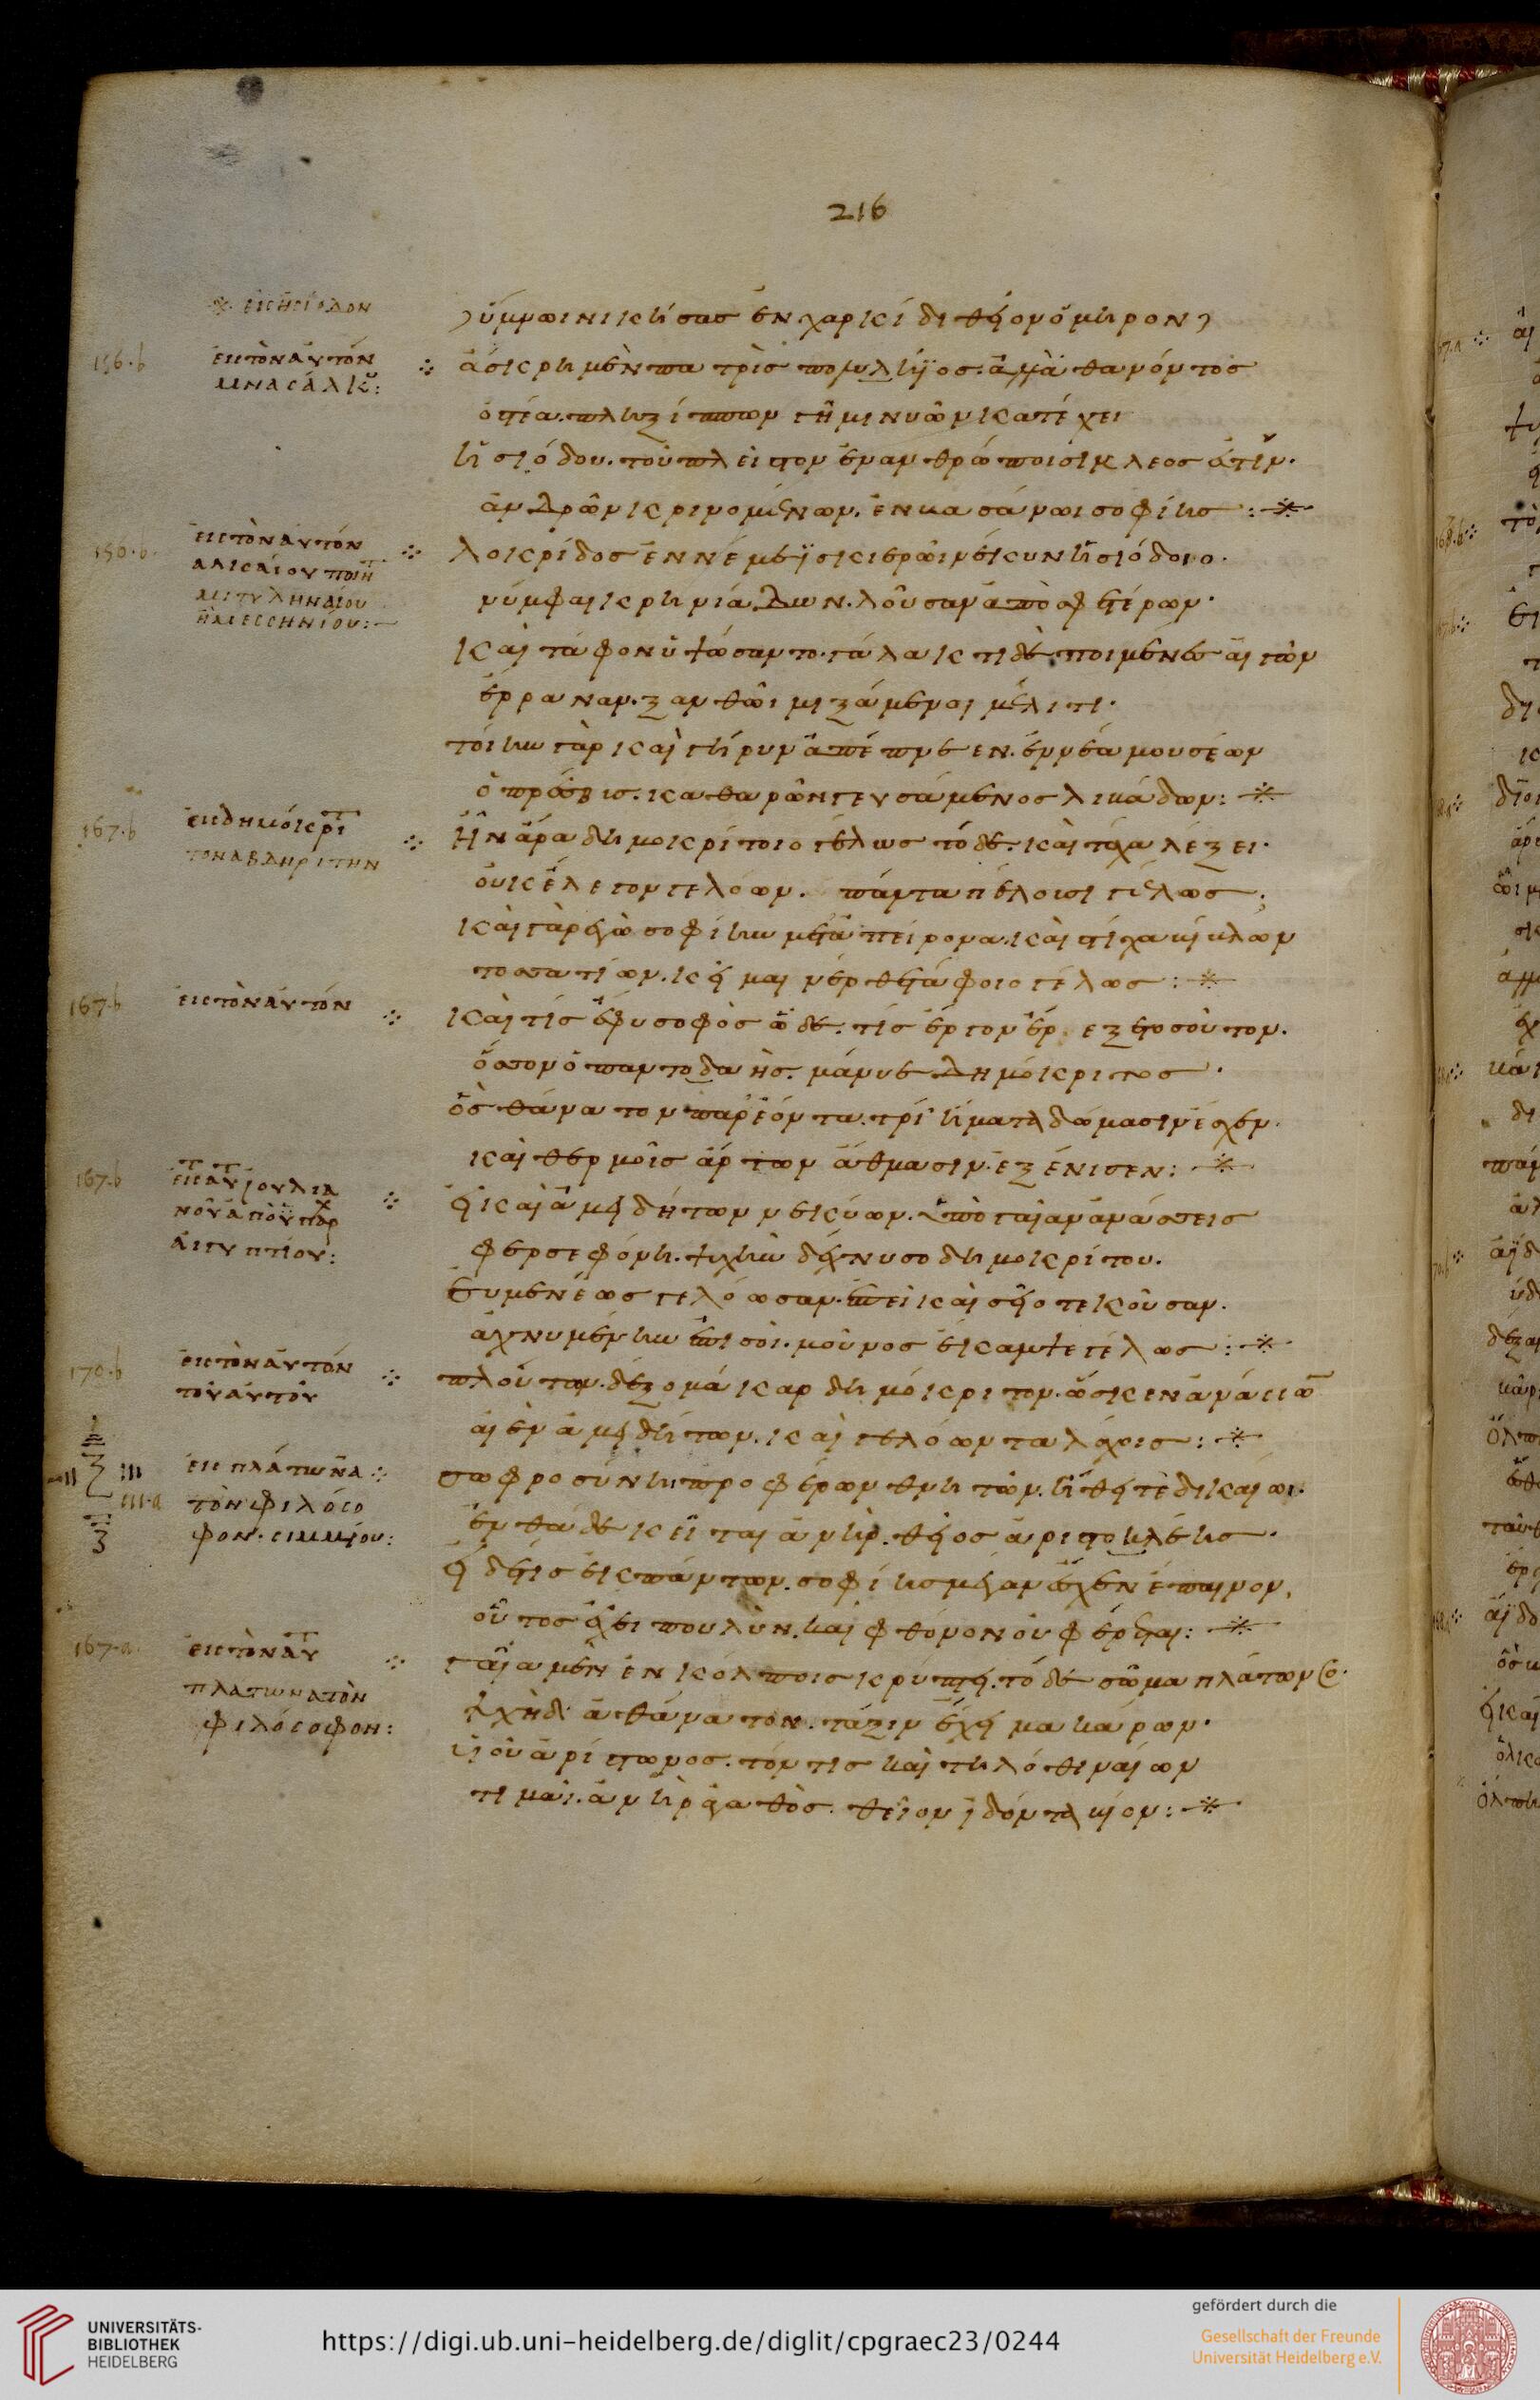 216
εἰς ἡσίοδον
ὕμνωι νικήσας ἐν χαλκίδι θεῖον ὅμηρον
156·b
εἰς τὸν αὐτόν
μνασάλκου:
ἄσκρη μὲν πατρὶς πολυλήϊος· ἀλλὰ θανόντος
ὀστέα· πληξίππων γῆ μινυῶν κατέχει
ἡσιόδου. τοῦ πλεῖστον ἐν ἀνθρώποισι κλέος ἐστίν·
ἀνδρῶν κρινομένων. ἐν βασάνωι σοφίης:
156·b·
εἰς τὸν αὐτόν
ἀλκαίου ποιη
μιτυληναίου
ἢ μεσσηνίου:
λοκρίδος ἐν νέμεϊ σκιερῶι νέκυν ἡσιόδοιο·
νύμφαι κρηνιάδων. λοῦσαν ἀπὸ σφετέρων·
καὶ τάφον ὑψώσαντο· γάλακτι δὲ ποιμένες αἰγῶν
ἔρραναν. ξανθῶι μιξάμενοι μέλιτι·
τοίην γὰρ καὶ γῆρυν ἀπέπνεεν. ἐννέα μουσέων
ὁ πρέσβυς. καθαρῶν γευσάμενος λιβάδων:
167·b
εἰς δημόκρι
τον ἀβδηρίτην
ἦν ἄρα δημοκρίτοιο γέλως τόδε. καὶ τάχα λέξει·
οὐκ ἔλεγον γελόων. πάντα πέλουσι γέλως;
καὶ γὰρ ἐγὼ σοφίην μετ' ἀπείρονα. καὶ στίχα βίβλων
τοσσατίων. κεῖμαι νέρθε τάφοιο γέλως:
167·b
εἰς τὸν αὐτόν
καὶ τίς ἔφυ σοφὸς ὧδε. τίς ἔργον ἔρεξε τοσοῦτον.
ὅσσον ὁ παντοδαής. μήνυε δημόκριτος·
ὃς θάνατον παρεόντα. τρί' ἤματα δώμασιν ἔσχεν·
καὶ θερμοῖς ἄρτων ἄσθμασιν. ἐξένισεν:
167·b
εἰς τ αὐτ ἰουλια
νοῦ ἀπὸ ὑπάρχ
αἰγυπτίου:
εἰ καὶ ἀμειδήτων νεκύων. ὑπὸ γαῖαν ἀνάσσεις
φερσεφόνη. ψυχὴν δέχνυσο δημοκρίτου.
εὐμενέως γελόωσαν. ἐπεὶ καὶ σεῖο τεκοῦσαν.
ἀχνυμένην ἐπὶ σοί. μοῦνος ἔκαμψε γέλως:
170·b
εἰς τὸν αὐτόν
τοῦ αὐτοῦ
πλούτων. δέξο μάκαρ δημόκριτον. ὥς κεν ἀνάσσων
αἰὲν ἀμειδήτων. καὶ γελόωντα λάχοις:
εἰς πλάτωνα
τὸν φιλόσο
φον· σιμμίου:
σωφροσύνηι προφέρων θνητῶν. ἤθει τὲ δικαίωι·
ἐνθάδε κεῖται ἀνήρ. θεῖος ἀριστοκλέης·
εἰ δέ τις ἐκ πάντων. σοφίης μέγαν ἔσχεν ἔπαινον,
οὗτος ἔχει πουλὺν. καὶ φθόνον οὐ φέρεται:
167·a·
εἰς τὸν αὐτ
πλάτωνα τὸν
φιλόσοφον:
γαῖα μὲν ἐν κόλποις κρύπτει. τόδε σῶμα πλάτωνος·
ψυχὴ δ' ἀθάνατον. τάξιν ἔχει μακάρων·
υἱοῦ ἀρίστωνος. τόν τις καὶ τηλόθι ναίων
τιμᾶι. ἀνὴρ ἀγαθὸς. θεῖον ἰδόντα βίον:
UNIVERSITÄTS-
BIBLIOTHEK
HEIDELBERG
https://digi.ub.uni-heidelberg.de/diglit/cpgraec23/0244
gefördert durch die
Gesellschaft der Freunde
Universität Heidelberg e.V.